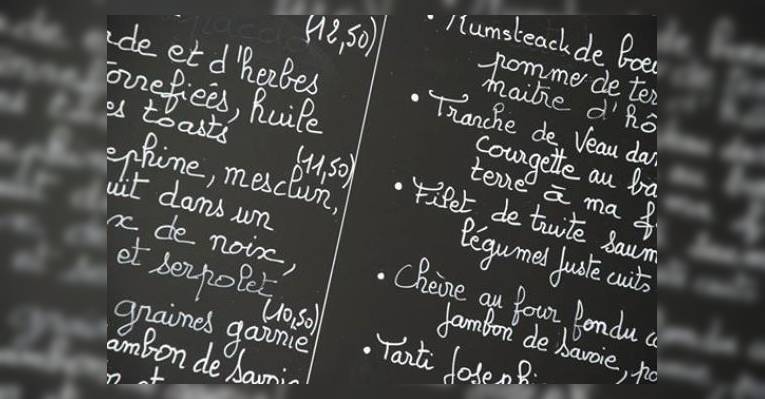 (12,50)
rde et d'herbes
orrefiées, huile
es toasts
(11,50)
ephine, mesclun,
uit dans un
x de noix,
et serpolet
(10,50)
graines garnie
ambon de Savoie
• Rumsteack de boeu
pomme de ter
maitre d'hô
• Tranche de Veau dan
courgette au ba
terre à ma f
• Filet de truite saum
légumes juste cuits
• Chèvre au four fondu
Jambon de Savoie, po
• Tarti Joseph